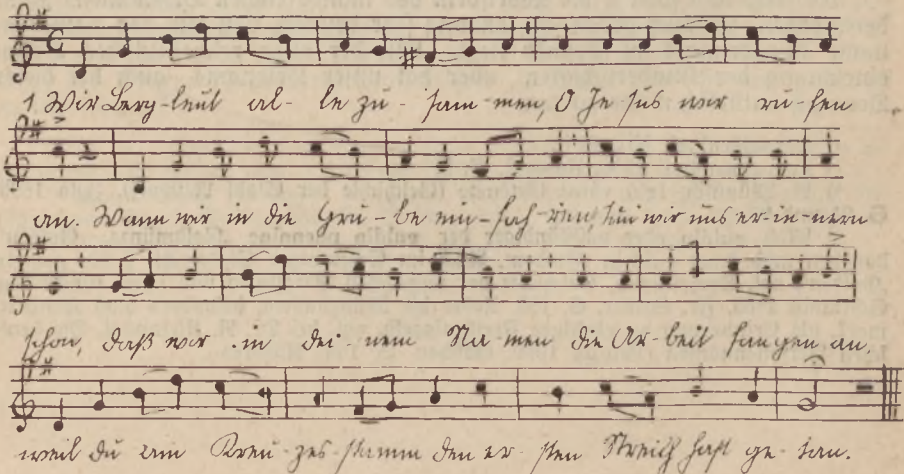 1. Wir Berg-leut al-le zu-sam-men, O Je sus wir ru-fen
an. Wann wir in die Gru-be ein-fah-ren, tun wir uns er-in-nern
schon, daß wir in dei-nem Na-men die Ar-beit fangen an,
weil du am Kreu-zes-stamm den er-sten Streich hast ge-tan.